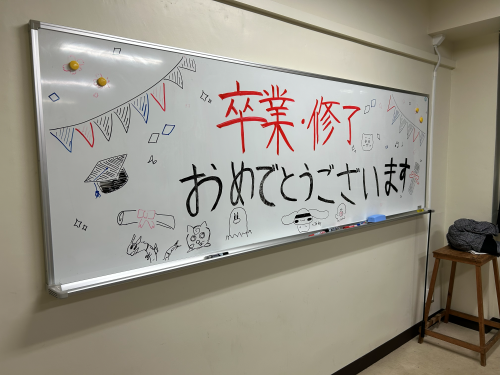 卒業・修了
おめでとうございます